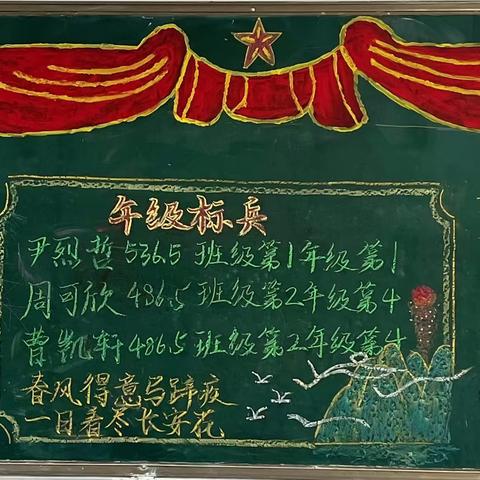 年级标兵
尹烈哲536.5班级第1年级第1
周可欣486.5班级第2年级第4
曹凯轩486.5班级第2年级第4
春风得意马蹄疾
一日看尽长安花